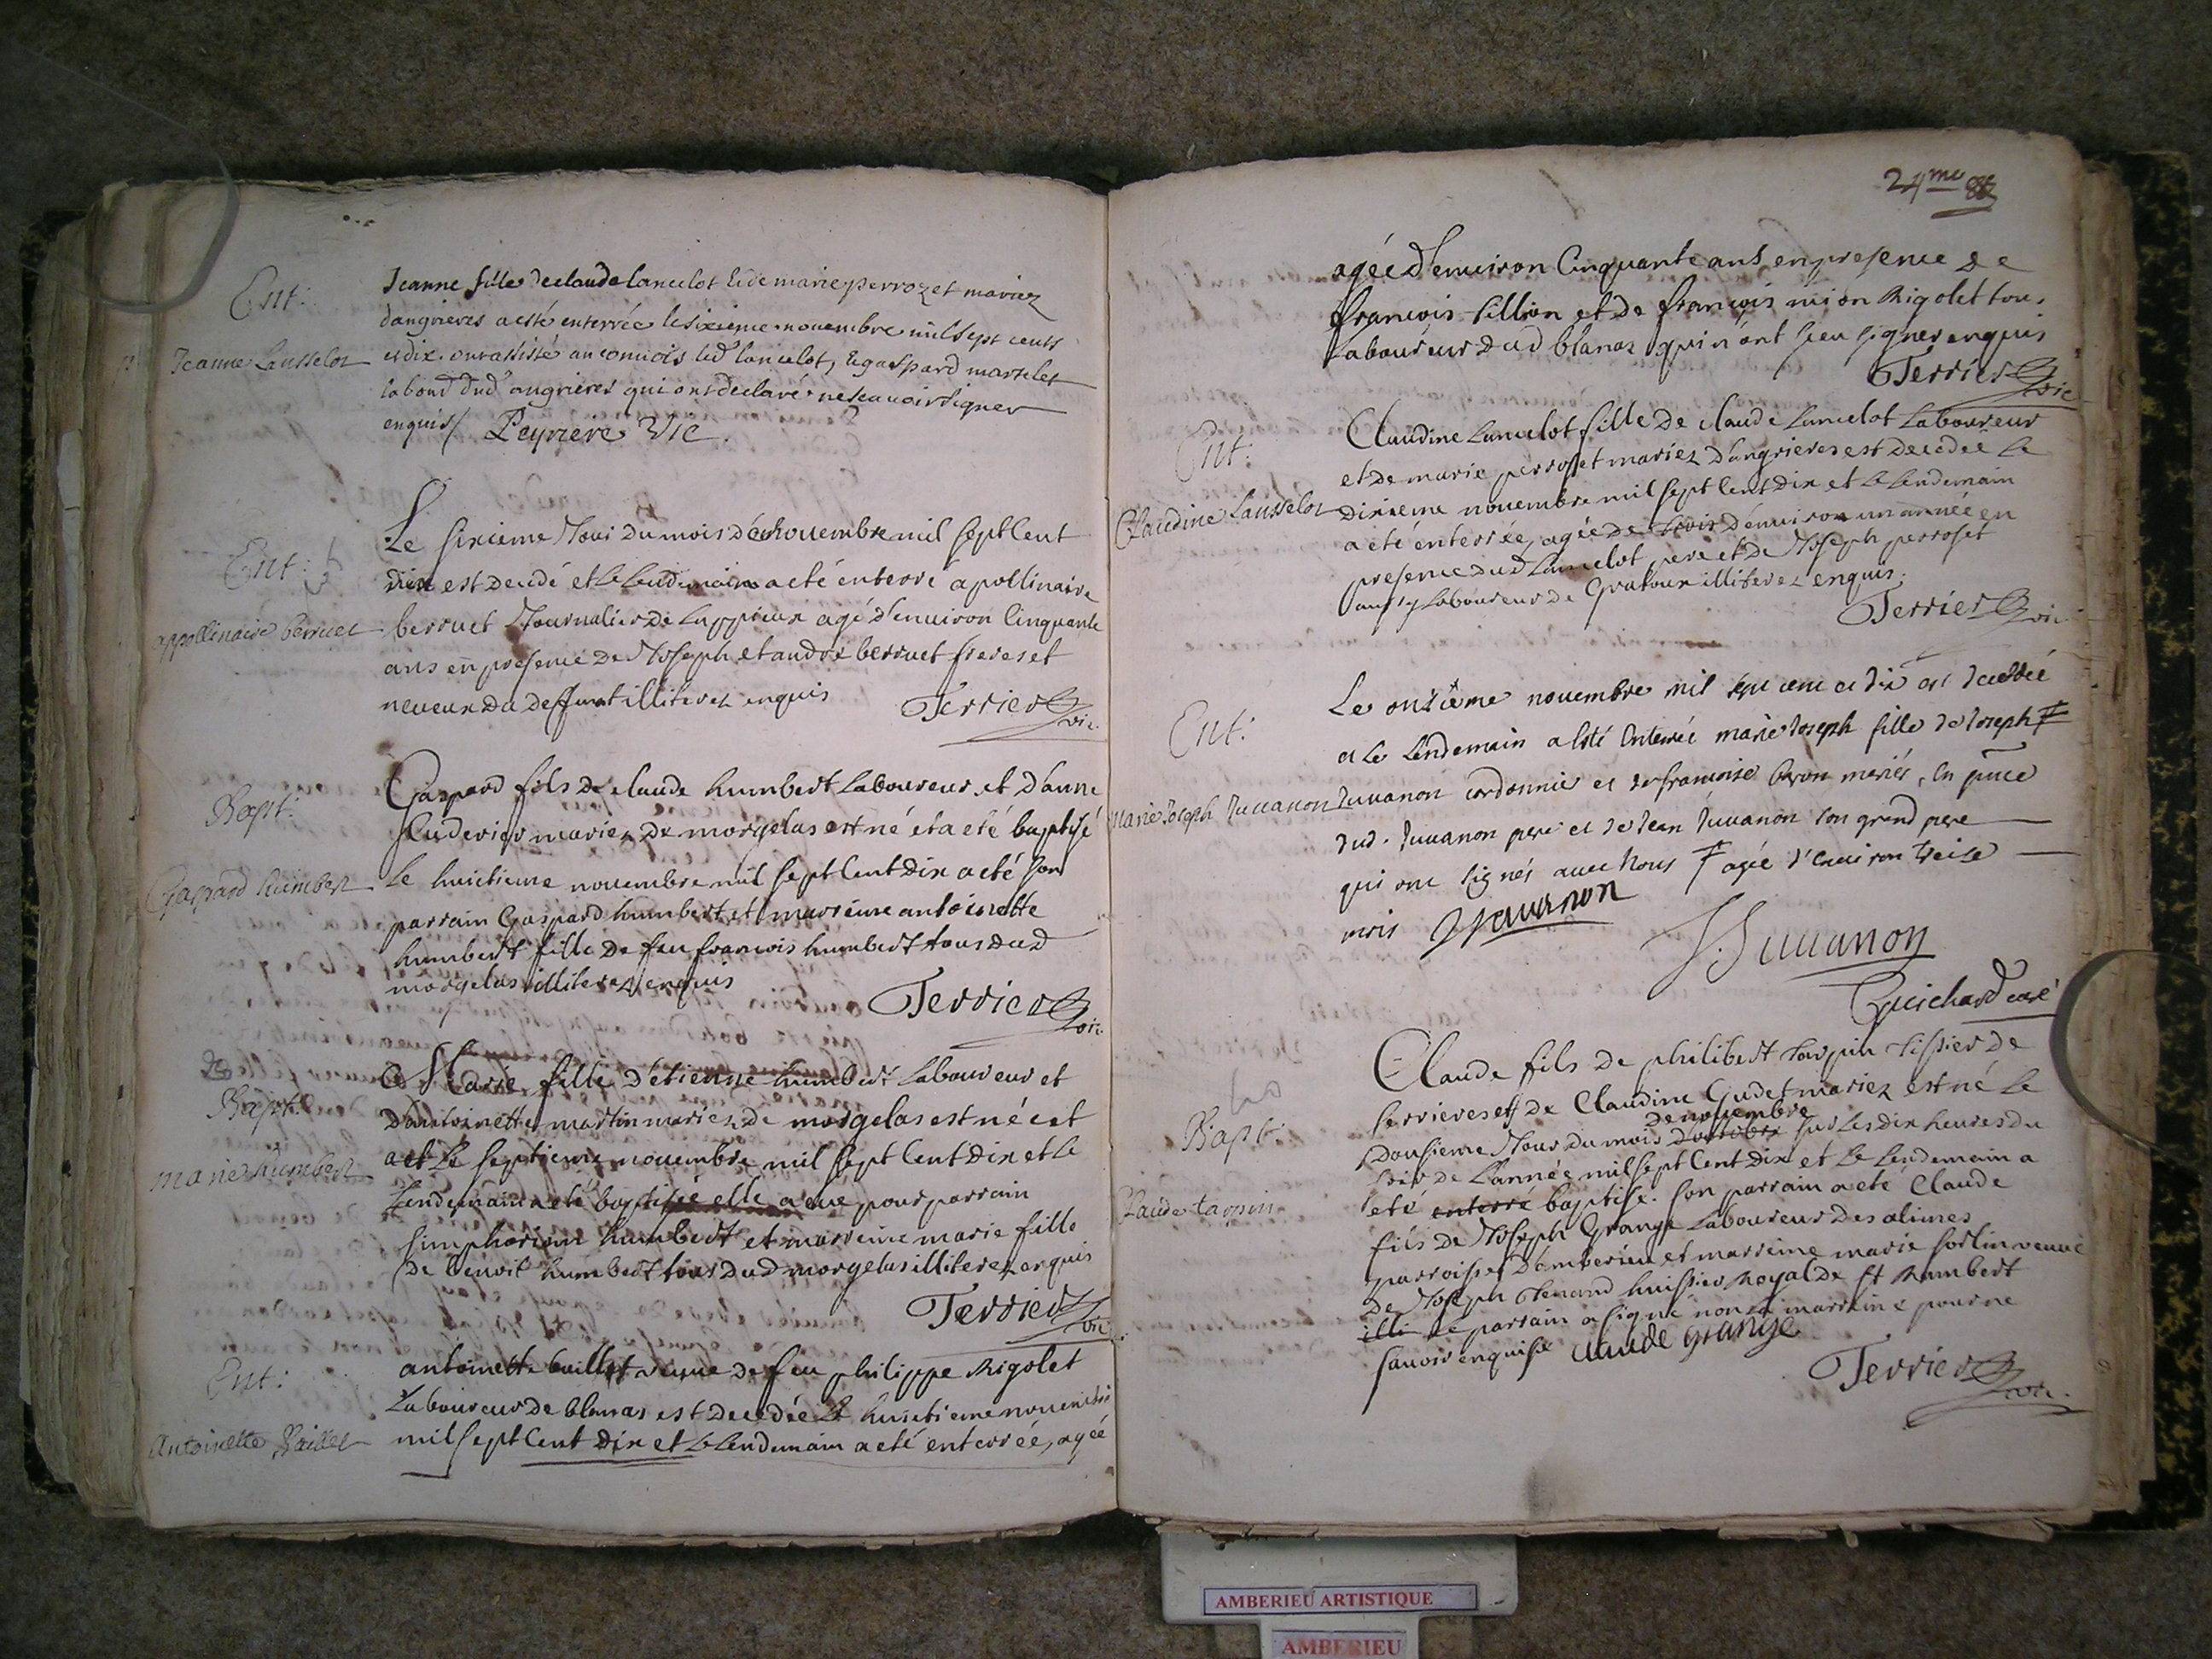 Ent:
Jeanne Lausselot
Jeanne fille de claude lancelot & de marie perrozet mariez
dangrieres a esté enterrée le sixieme novembre mil sept cents
et dix. ont assisté au convois led lancelot, & gaspard
labour dud angrieres qui ont declaré ne scavoir signer
enquis / Peyriere Vic.
Ent:
appollinaire berruet
Le sixieme Jour du mois de novembre mil sept cent
dix est decedé et le lendemain a eté enterré apollinaire
berruet Journalier de agé d'environ Cinquante
ans en presence de Joseph et andre berruet freres et
neveux du deffunt illiterez enquis
Terrier vic.
Bapt:
Gaspard humbert
Gaspard fils de claude humbert Laboureur et d'anne
mariez de morgelas est né et a eté baptisé
le huictieme novembre mil sept cent dix a eté son
parrain Gaspard humbert et marreine antoinette
humbert fille de feu francois humbert tous dud
morgelas illiterez enquis
Terrier vic.
Bapt:
marie humbert
Marie fille d'etienne humbert laboureur et
D'antoinette martin mariez de morgelas est né eet
a et le septieme novembre mil sept Cent Dix et le
Lendemain a eté baptisée elle a eue pour parrain
simphorien humbert et marreine marie fille
de benoit humbert tous dud morgelas illiterez enquis
Terrier vic.
Ent:
Antoinette Baillet
antoinette baillet veuve de feu philippe Rigolet
Laboureur de blanas est decedée le huictieme novembre
mil sept Cent Dix et le lendemain a eté enterrée, agée
24me
agée d'environ Cinquante ans en presence de
francois fillion et de francois mion Rigolet tou.
Laboureur dud blanaz qui n'ont sceu signer enquis
Terrier vic
Ent:
Claudine Lausselot
Claudine Lancelot fille de claude Lancelot Laboureur
et de marie perroset mariez d'angrieres est decedée le
dixieme novembre mil sept Cent Dix et le lendemain
a eté enterrée, agée de trois d'environ un année en
presence dud Lancelot pere et de Joseph perroset
aussy Laboureur de Gratoux illiterez enquis.
Terrier vic.
Ent:
marie Joseph Juvanon
Le onzième novembre mil sept cent et dix est decedée
et le Lendemain a esté Enterrée marie Joseph fille de Joseph ‡
Juvanon cordonnier et de francoise mariés, En pnce
dud. Juvanon pere et de Jean Juvanon son grand pere
qui ont signés avec Nous ‡ agée d'environ treize
mois Juvanon
J. Juvanon
Guichard curé
Bapt:
Claude tarpin
Claude fils de philibert tarpin tissier de
serrieres et de Claudine Gudet mariez est né le
de novembre
Dousieme Jour du mois d'octobre sur les dix heures du
soir de L'année mil sept Cent Dix et le Lendemain a
eté enterré baptisé. son parrain a eté Claude
fils de Joseph Grange Laboureur des alimes
parroisse d'emberieu et marreine marie sorlin veuve
de Joseph tenand huissier Royal de st Rambert
illi le parrain a signé non la marraine pour ne
savoir enquise claude grange
Terrier vic.
AMBERIEU ARTISTIQUE
AMBERIEU